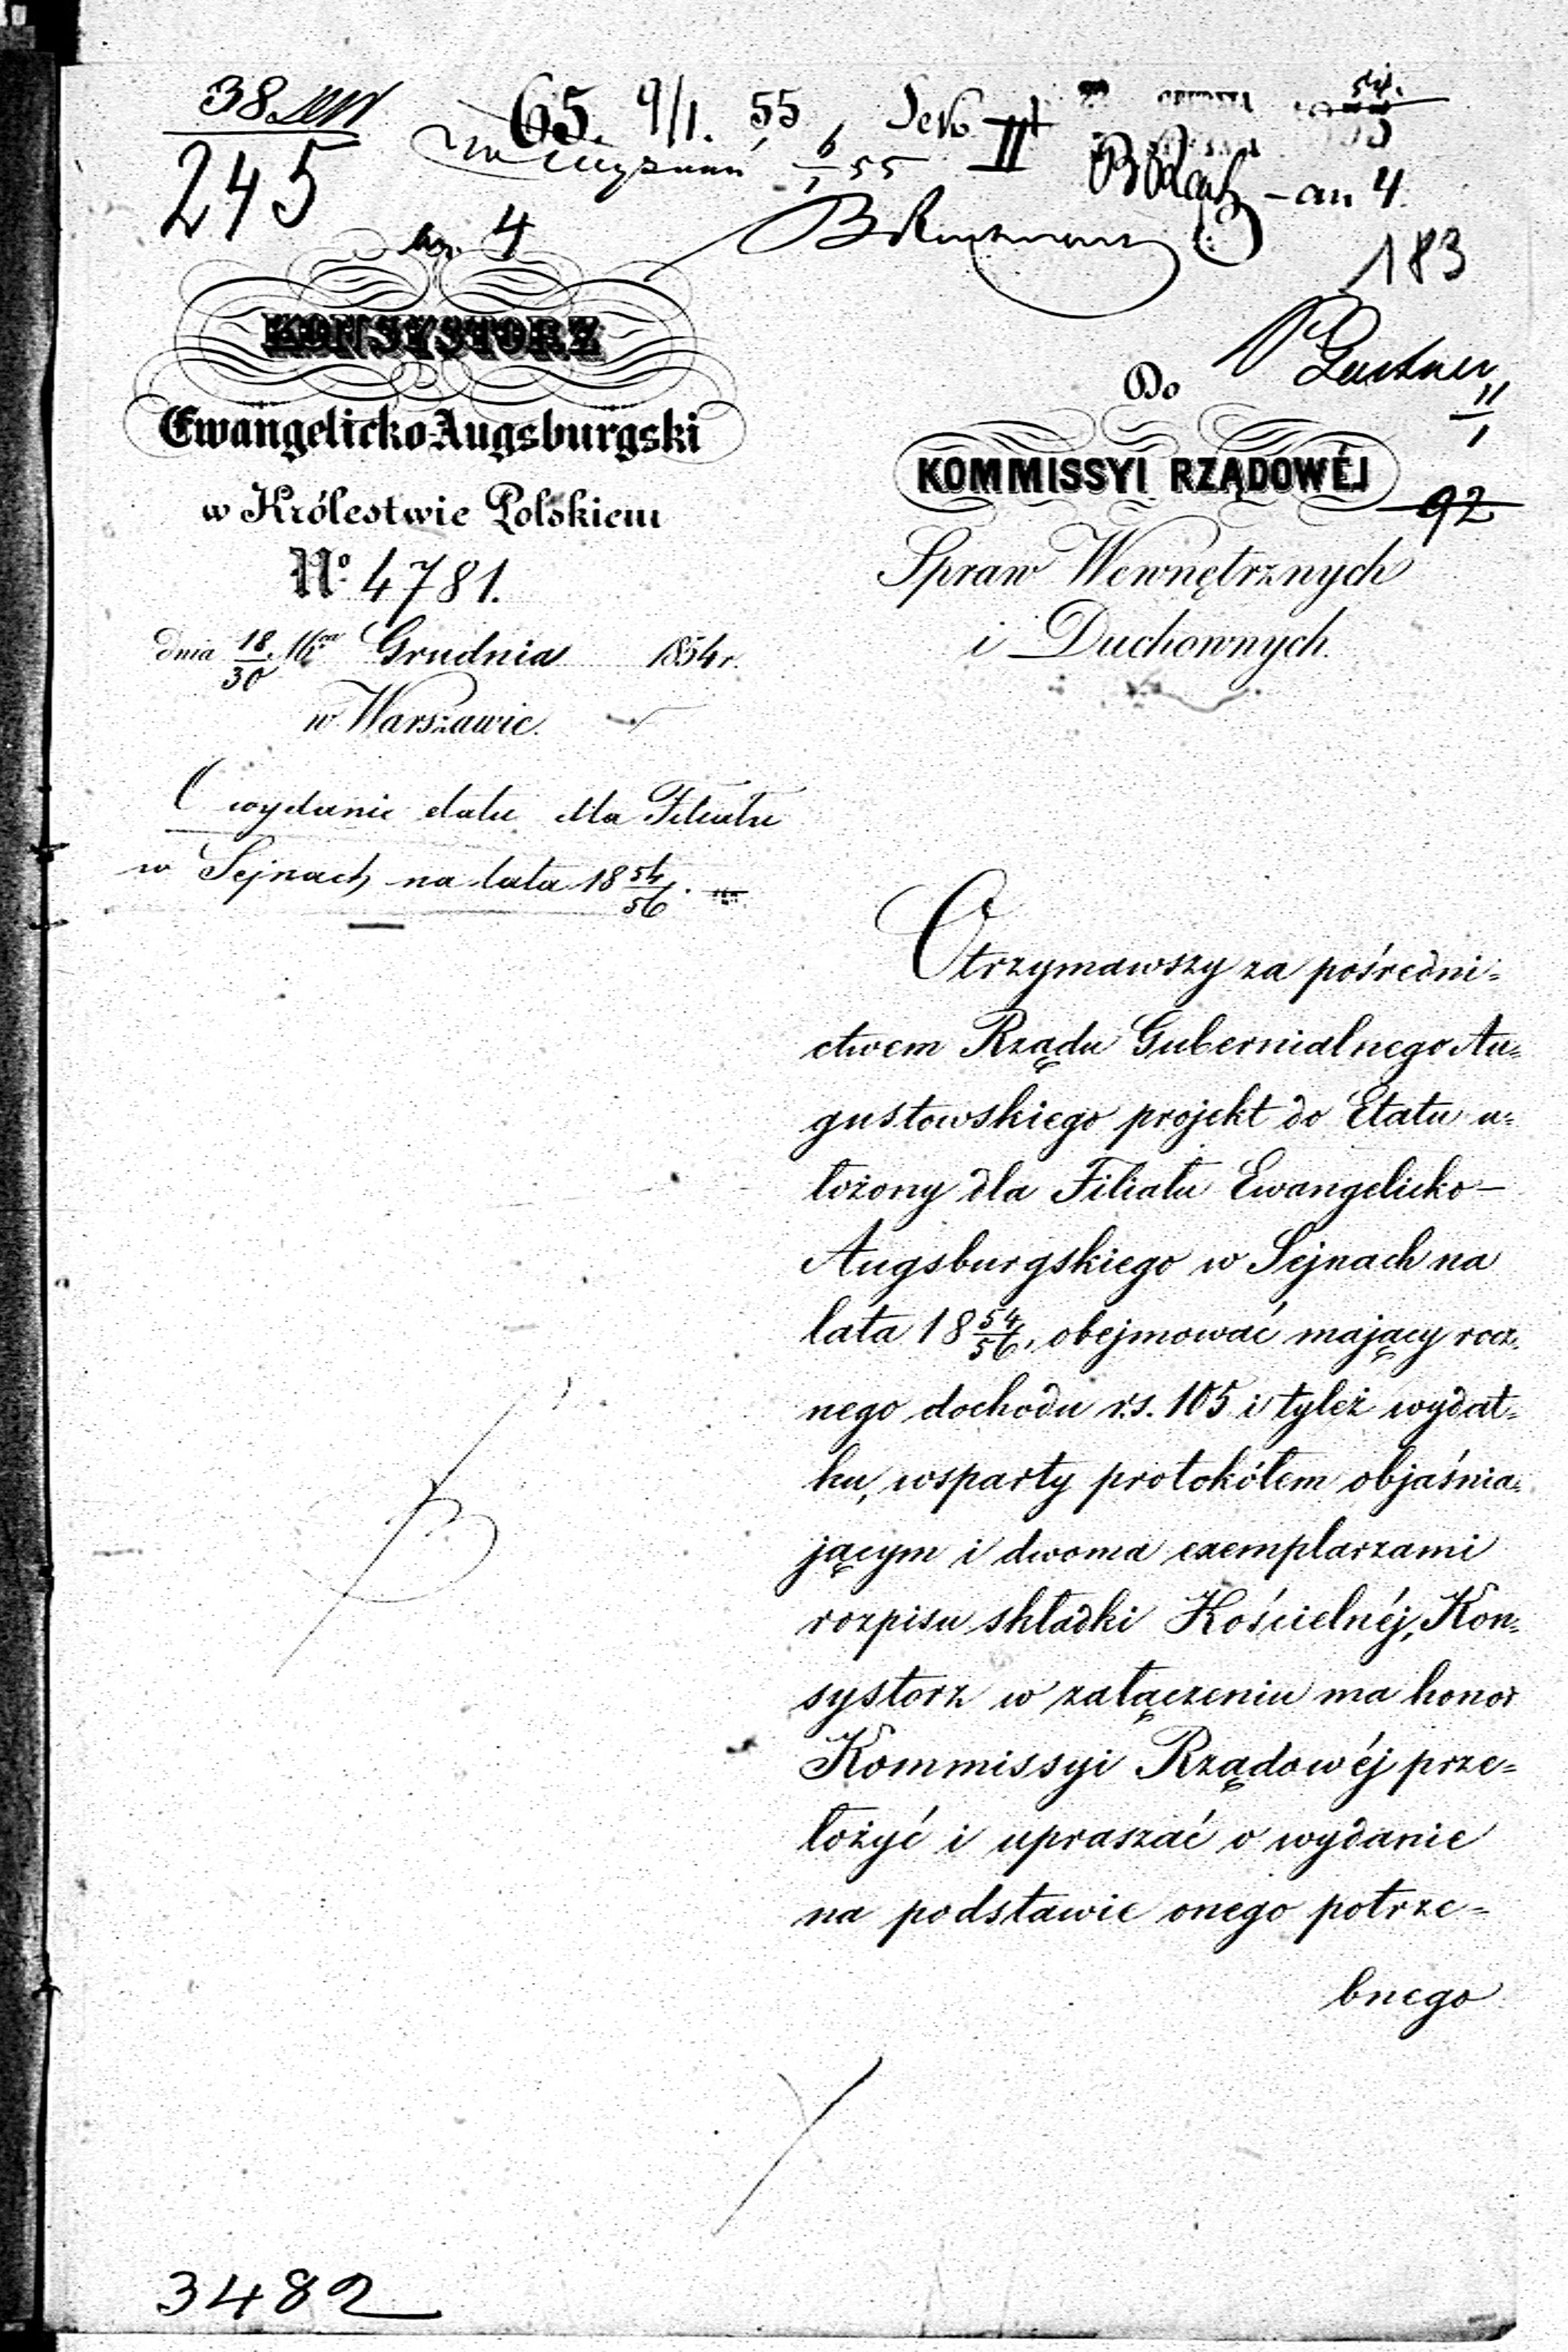 38
245
65. 9/1. 55
II
6/1 55
an 4.
183
an. 4
KONSYSTORZ
Ewangelicko-Augsburgski
w Królestwie Polskiem
No. 4781.
dnia 18/30 Grudnia 1854 r.
w Warszawie.
O wydanie etatu dla Filiału
w Sejnach na lata 18 54/56.
Do
11/1
KOMMISSYI RZĄDOWÉJ
92
Spraw Wewnętrznych
i Duchownych.
Otrzymawszy za pośredni=
ctwem Rządu Gubernialnego Au=
gustowskiego projekt do Etatu u=
łożony dla Filiału Ewangelicko-
Augsburgskiego w Sejnach na
lata 18 54/56, obejmować mający rocz=
nego dochodu r.s. 105 i tyleż wydat=
ku, wsparty protokółem objaśnia=
jącym i dwoma exemplarzami
rozpisu składki Kościelnéj, Kon=
systorz w załączeniu ma honor
Kommissyi Rządowéj prze=
łożyć i upraszać o wydanie
na podstawie onego potrze=
bnego
3482